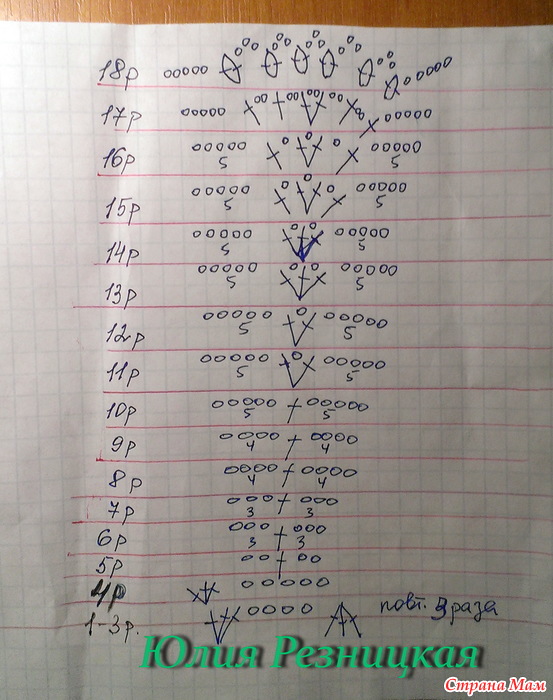 18р
17р
16р 5 5
15р 5 5
14р 5 5
13р 5 5
12р 5 5
11р 5 5
10р 5 5
9р 4 4
8р 4 4
7р 3 3
6р 3 3
5р
4р
1-3р. повт. 3 раза
Юлия Резницкая
Страна Мам